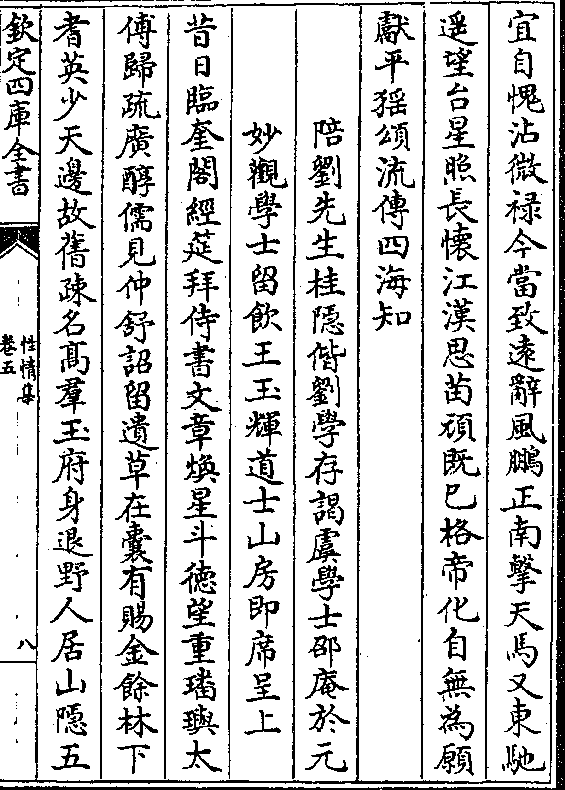 宜自愧沾微禄今當致遠辭風鵬正南擊天馬又東馳
遥望台星照長懷江漢思苗頑既已格帝化自無為願
獻平猺頌流傳四海知
陪劉先生桂隱偕劉學存謁虞學士邵庵於元
妙觀學士留飲王玉輝道士山房即席呈上
昔日臨奎閣經筵拜侍書文章煥星斗徳望重璠璵太
傅歸疏廣醇儒見仲舒詔留遺草在囊有賜金餘林下
耆英少天邊故舊疎名髙羣玉府身退野人居山隠五
欽定四庫全書
性情集
卷五
八